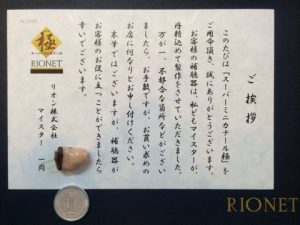 ご挨拶
このたびは『スーパーミニカナール極』を
ご用命頂き、誠にありがとうございます。
お客様の補聴器は、私どもマイスターが、
丹精込めて製作をさせていただきました。
万が一、不都合な箇所などがござい
ましたら、お手数ですが、お買い求めの
お店に何なりとお申し付けください。
末筆ではございますが、補聴器が
お客様のお役に立つことができましたら
幸いでございます。
リオン株式会社
マイスター 一同
極
スーパーミニカナール
RIONET
RIONET